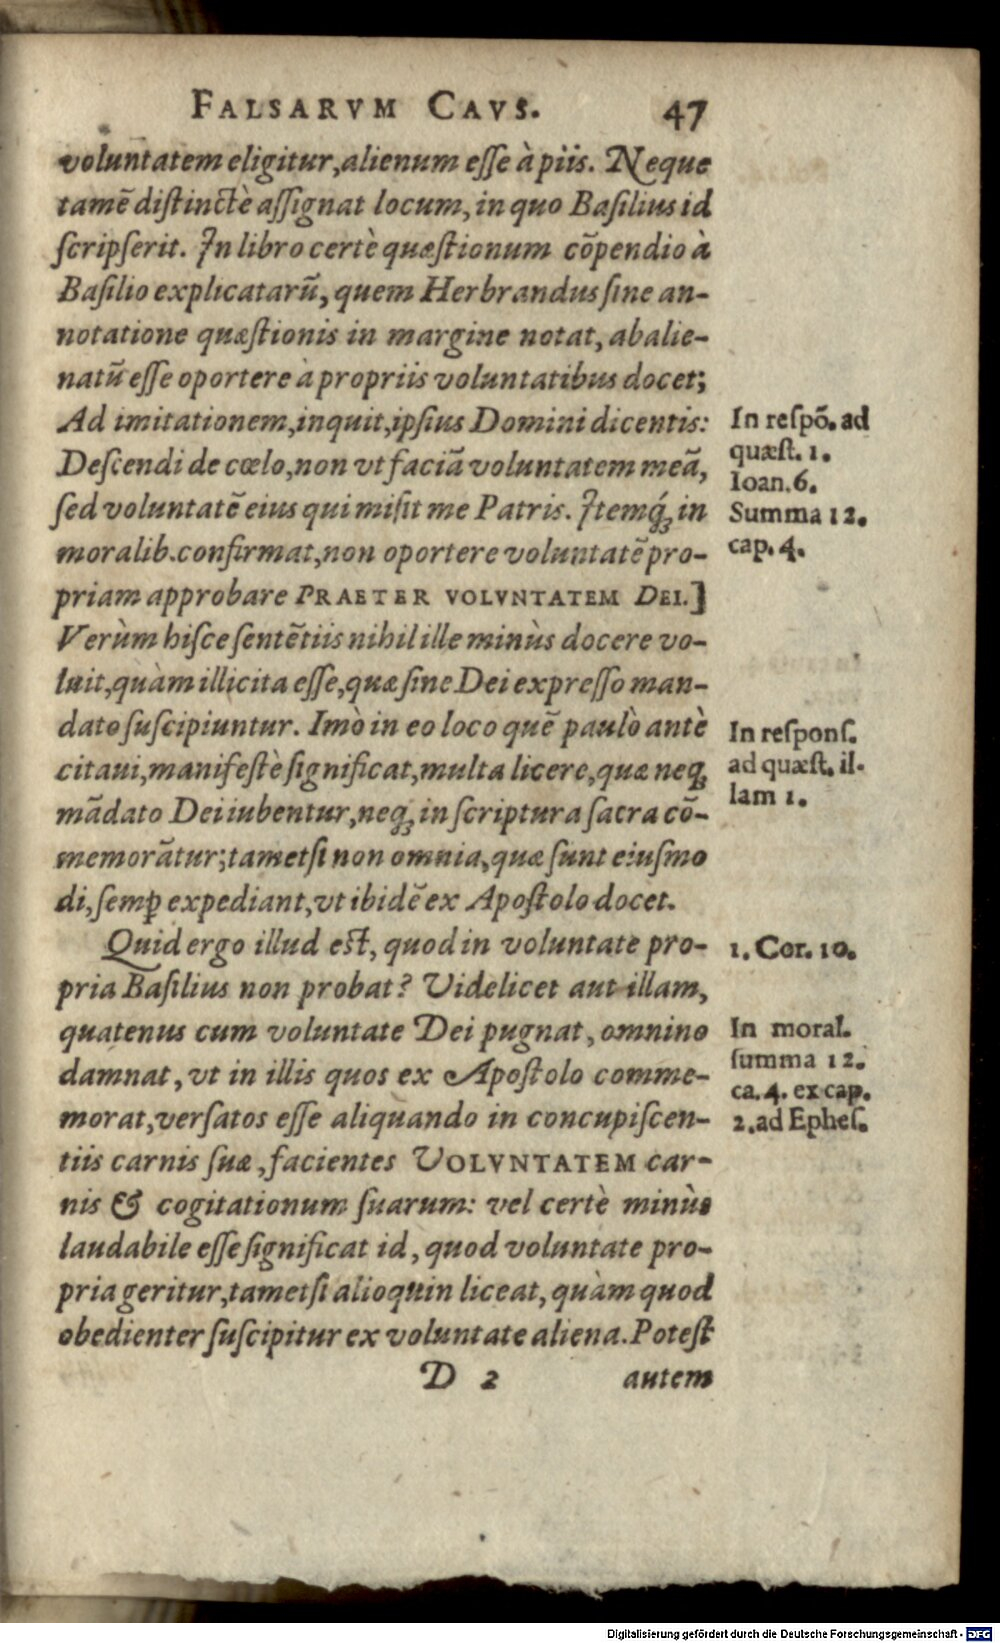 FALSARVM CAVS. 47
voluntatem eligitur, alienum eſſe à piis. Neque
tamẽ diſtinctè aſſignat locum, in quo Baſilius id
ſcripſerit. In libro certè quæſtionum cõpendio à
Baſilio explicatarũ, quem Herbrandus ſine an-
notatione quæſtionis in margine notat, abalie-
natũ eſſe oportere à propriis voluntatibus docet;
Ad imitationem, inquit, ipſius Domini dicentis:
Deſcendi de cœlo, non vt faciã voluntatem meã,
ſed voluntatẽ eius qui miſit me Patris. Itemq́ꝫ in
moralib. confirmat, non oportere voluntatẽ pro-
priam approbare PRAETER VOLVNTATEM DEI.]
Verùm hiſce ſentẽtiis nihil ille minùs docere vo-
luit, quàm illicita eſſe, quæ ſine Dei expreſſo man-
dato ſuſcipiuntur. Imò in eo loco quẽ paulò antè
citaui, manifeſtè ſignificat, multa licere, quæ neqꝫ
mãdato Dei iubentur, neqꝫ in ſcriptura ſacra cõ-
memorãtur; tametſi non omnia, quæ ſunt eiuſmo
di, ſemꝑ expediant, vt ibidẽ ex Apoſtolo docet.
Quid ergo illud eſt, quod in voluntate pro-
pria Baſilius non probat? Videlicet aut illam,
quatenus cum voluntate Dei pugnat, omnino
damnat, vt in illis quos ex Apoſtolo comme-
morat, verſatos eſſe aliquando in concupiſcen-
tiis carnis ſuæ, facientes VOLVNTATEM car-
nis & cogitationum ſuarum: vel certè minùs
laudabile eſſe ſignificat id, quod voluntate pro-
pria geritur, tametſi alioquin liceat, quàm quod
obedienter ſuſcipitur ex voluntate aliena. Poteſt
D 2 autem
In reſpõ. ad
quæſt. 1.
Ioan. 6.
Summa 12.
cap. 4.
In reſponſ.
ad quæſt. il-
lam 1.
1. Cor. 10.
In moral.
ſumma 12.
ca. 4. ex cap.
2. ad Epheſ.
Digitalisierung gefördert durch die Deutsche Forschungsgemeinschaft - DFG